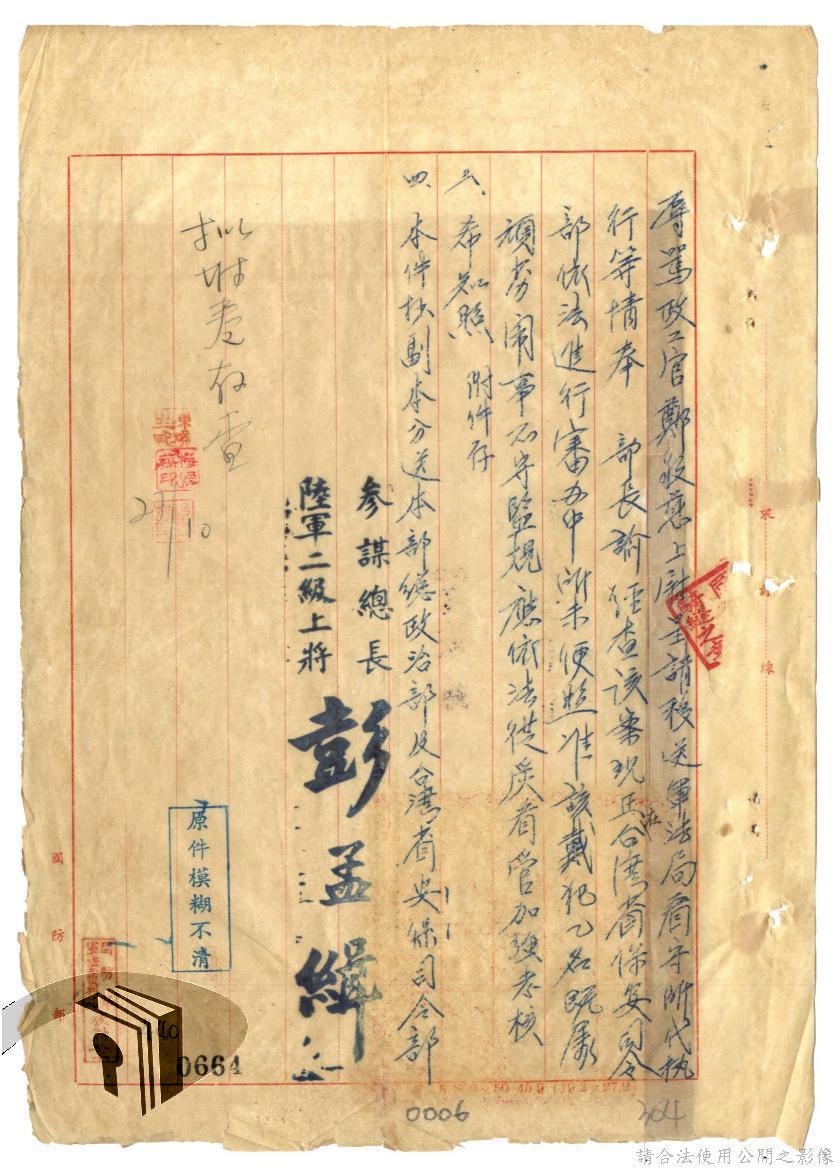 辱罵政工官鄭 上尉呈請移送軍法局看守所代執
行等情奉 部長諭經查該案現正在台灣省保安司令
部依法進行審 中所未便照准該戴犯乙名既屬
頑劣鬧事不守監規應依法從嚴看管加強考核
三、希知照 附件存
四、本件抄副本分送本部總政治部及台灣省保安司令部
參謀總長
陸軍二級上將
彭孟緝
擬 卷存查
25/10
原件模糊不清
線
國防部
0664
0006
304
請合法使用公開之影像